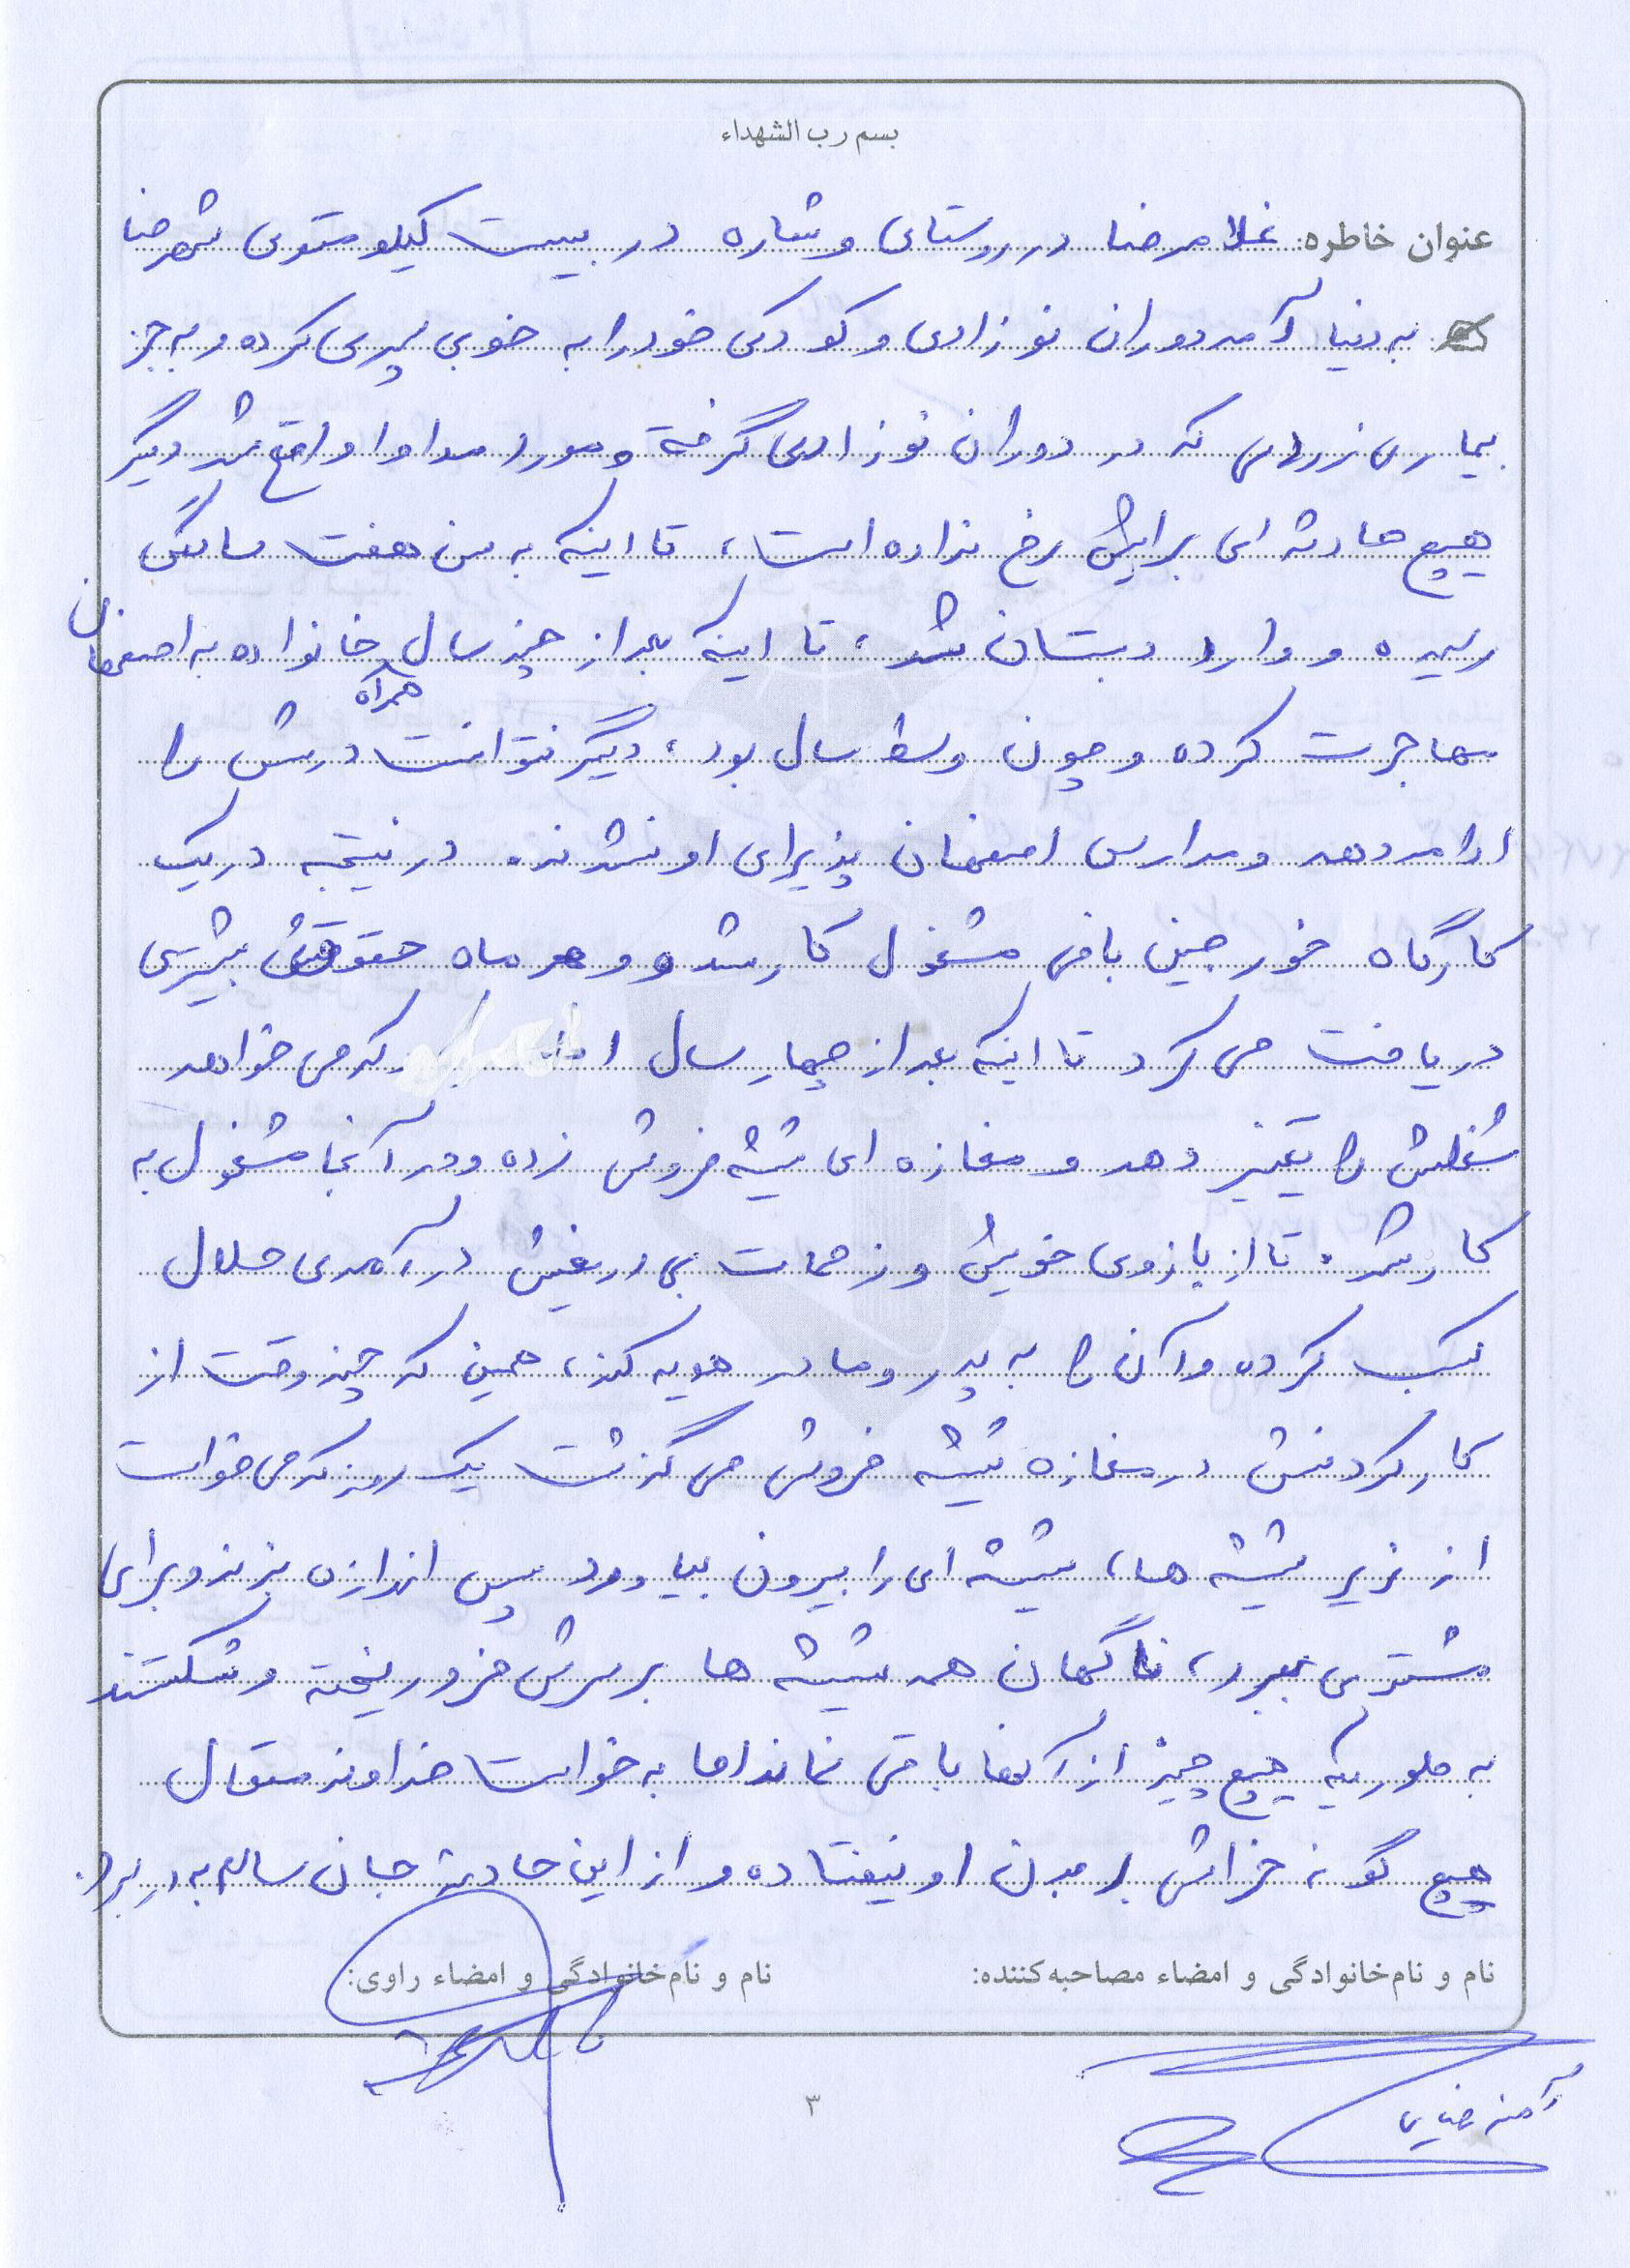 بسم رب الشهداء
عنوان خاطره: غلامرضا در روستای وشاره در بیست کیلومتری شهرضا
به دنیا آمد دوران نوزادی و کودکی خود را به خوبی سپری کرده و به جز
بیماری زردی که در دوران نوزادی گرفته و مورد مداوا واقع شد دیگر
هیچ حادثه ای برایش رخ نداده است، تا اینکه به سن هفت سالگی
رسیده و وارد دبستان شد، تا اینکه بعد از چند سال همراه خانواده به اصفهان
مهاجرت کرده و چون وسط سال بود، دیگر نتوانست درسش را
ادامه دهد و مدارس اصفهان پذیرای او نشدند. در نتیجه در یک
کارگاه خورجین بافی مشغول کار شد و هر ماه حقوق بیشتری
دریافت می کرد تا اینکه بعد از چهار سال که می خواهد
شغلش را تغییر دهد و مغازه ای شیشه فروشی زده و در آنجا مشغول به
کار شد. تا از بازوی خویش و زحمات بی دریغش درآمدی حلال
کسب کرده و آن را به پدر و مادر هدیه کند، همین که چند وقت از
کار کردنش در مغازه شیشه فروشی می گذشت یک روز که می خواست
از زیر شیشه ها، شیشه ای را بیرون بیاورد سپس اندازه بزند و برای
مشتری ببرد، ناگهان همه شیشه ها بر سرش فرو ریخته و شکستند
به طوریکه هیچ چیز از آنها باقی نماند اما به خواست خداوند متعال
هیچ گونه خراشی بر بدن او نیفتاده و از این حادثه جان سالم به در برد.
نام و نام‌خانوادگی و امضاء مصاحبه‌کننده: نام و نام‌خانوادگی و امضاء راوی:
آمنه
۳